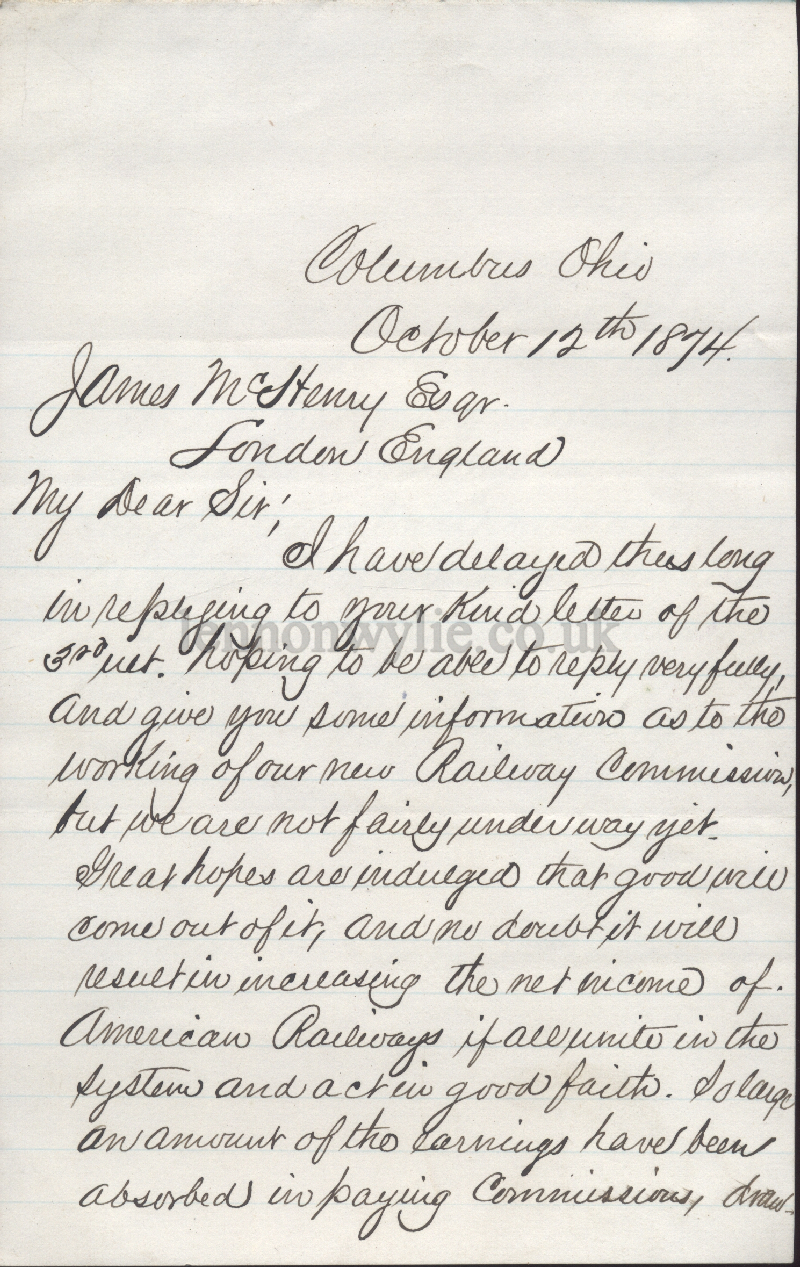 Columbus Ohio
October 12th 1874.
James McHenry Esqr.
London England
My Dear Sir;
I have delayed thus long
in replying to your kind letter of the
3rd ult. hoping to be able to reply very fully,
and give you some information as to the
working of our new Railway Commission,
but we are not fairly under way yet.
Great hopes are indulged that good will
come out of it, and no doubt it will
result in increasing the net income of.
American Railways if all unite in the
system and act in good faith. So large
an amount of the earnings have been
absorbed in paying Commissions, draw-
lennonwylie.co.uk